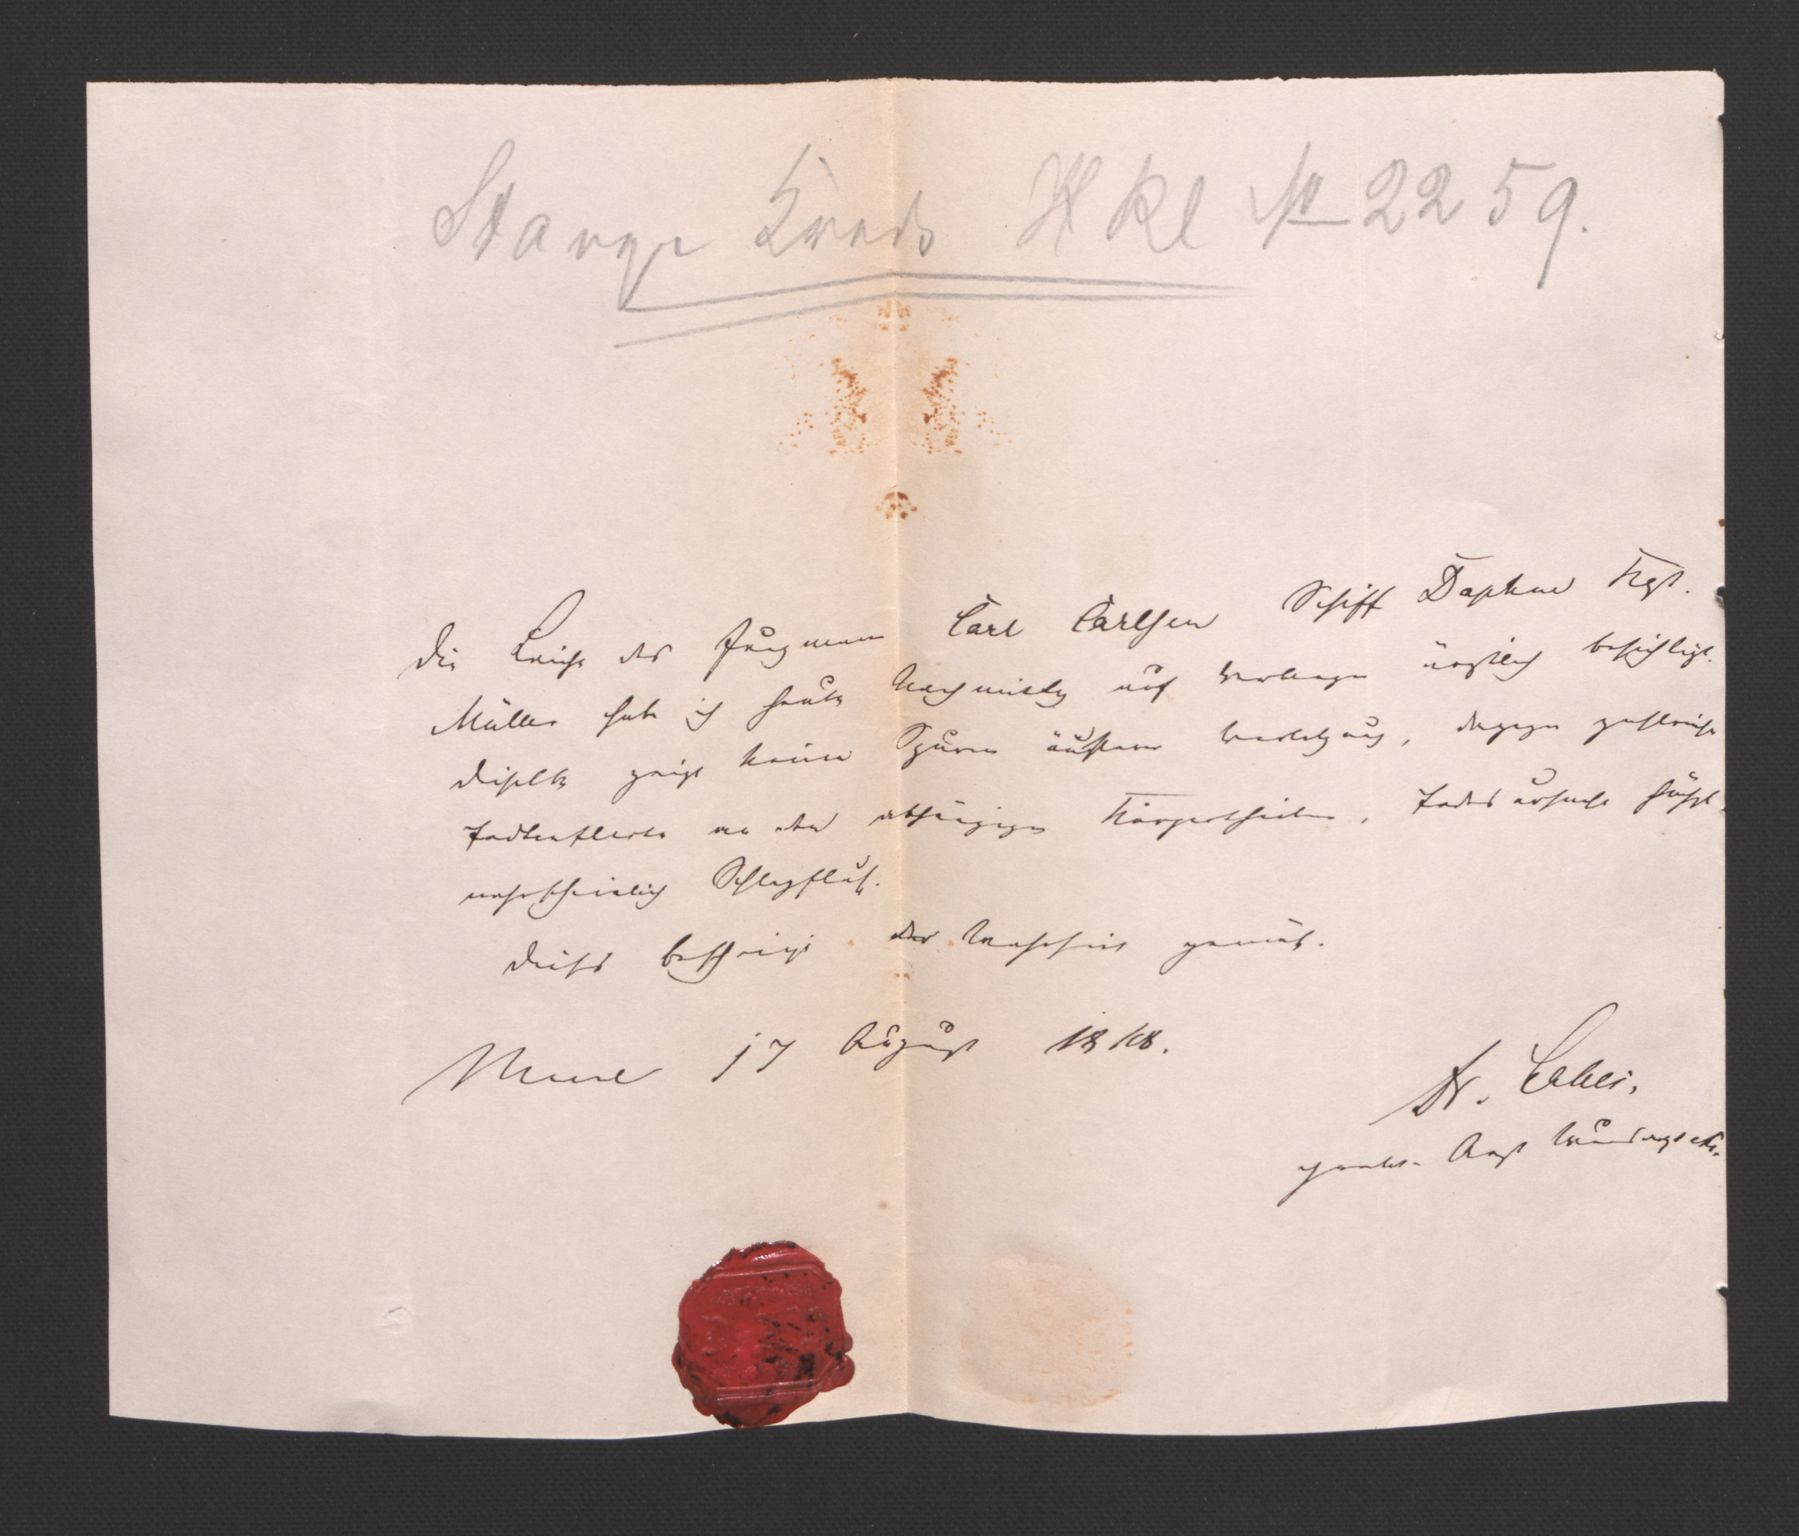 Stange Kreds H Kl № 2259.
Die Leiche des Jungmann Carl Carlsen Schiff Daphne Kapt.
Müller habe ich heute Nachmittag auf Verlangen ärztlich besichtigt.
Dieselbe zeigt keine Spuren äußerer Verletzung, dagegen zahlreiche
Todtenflecke an den abhängigen Körpertheilen. Todesursache höchst
wahrscheinlich Schlagfluß.
Dieses bescheinigt der Wahrheit gemäß.
17 August
Dr.
pract. Arzt Wundarzt etc.